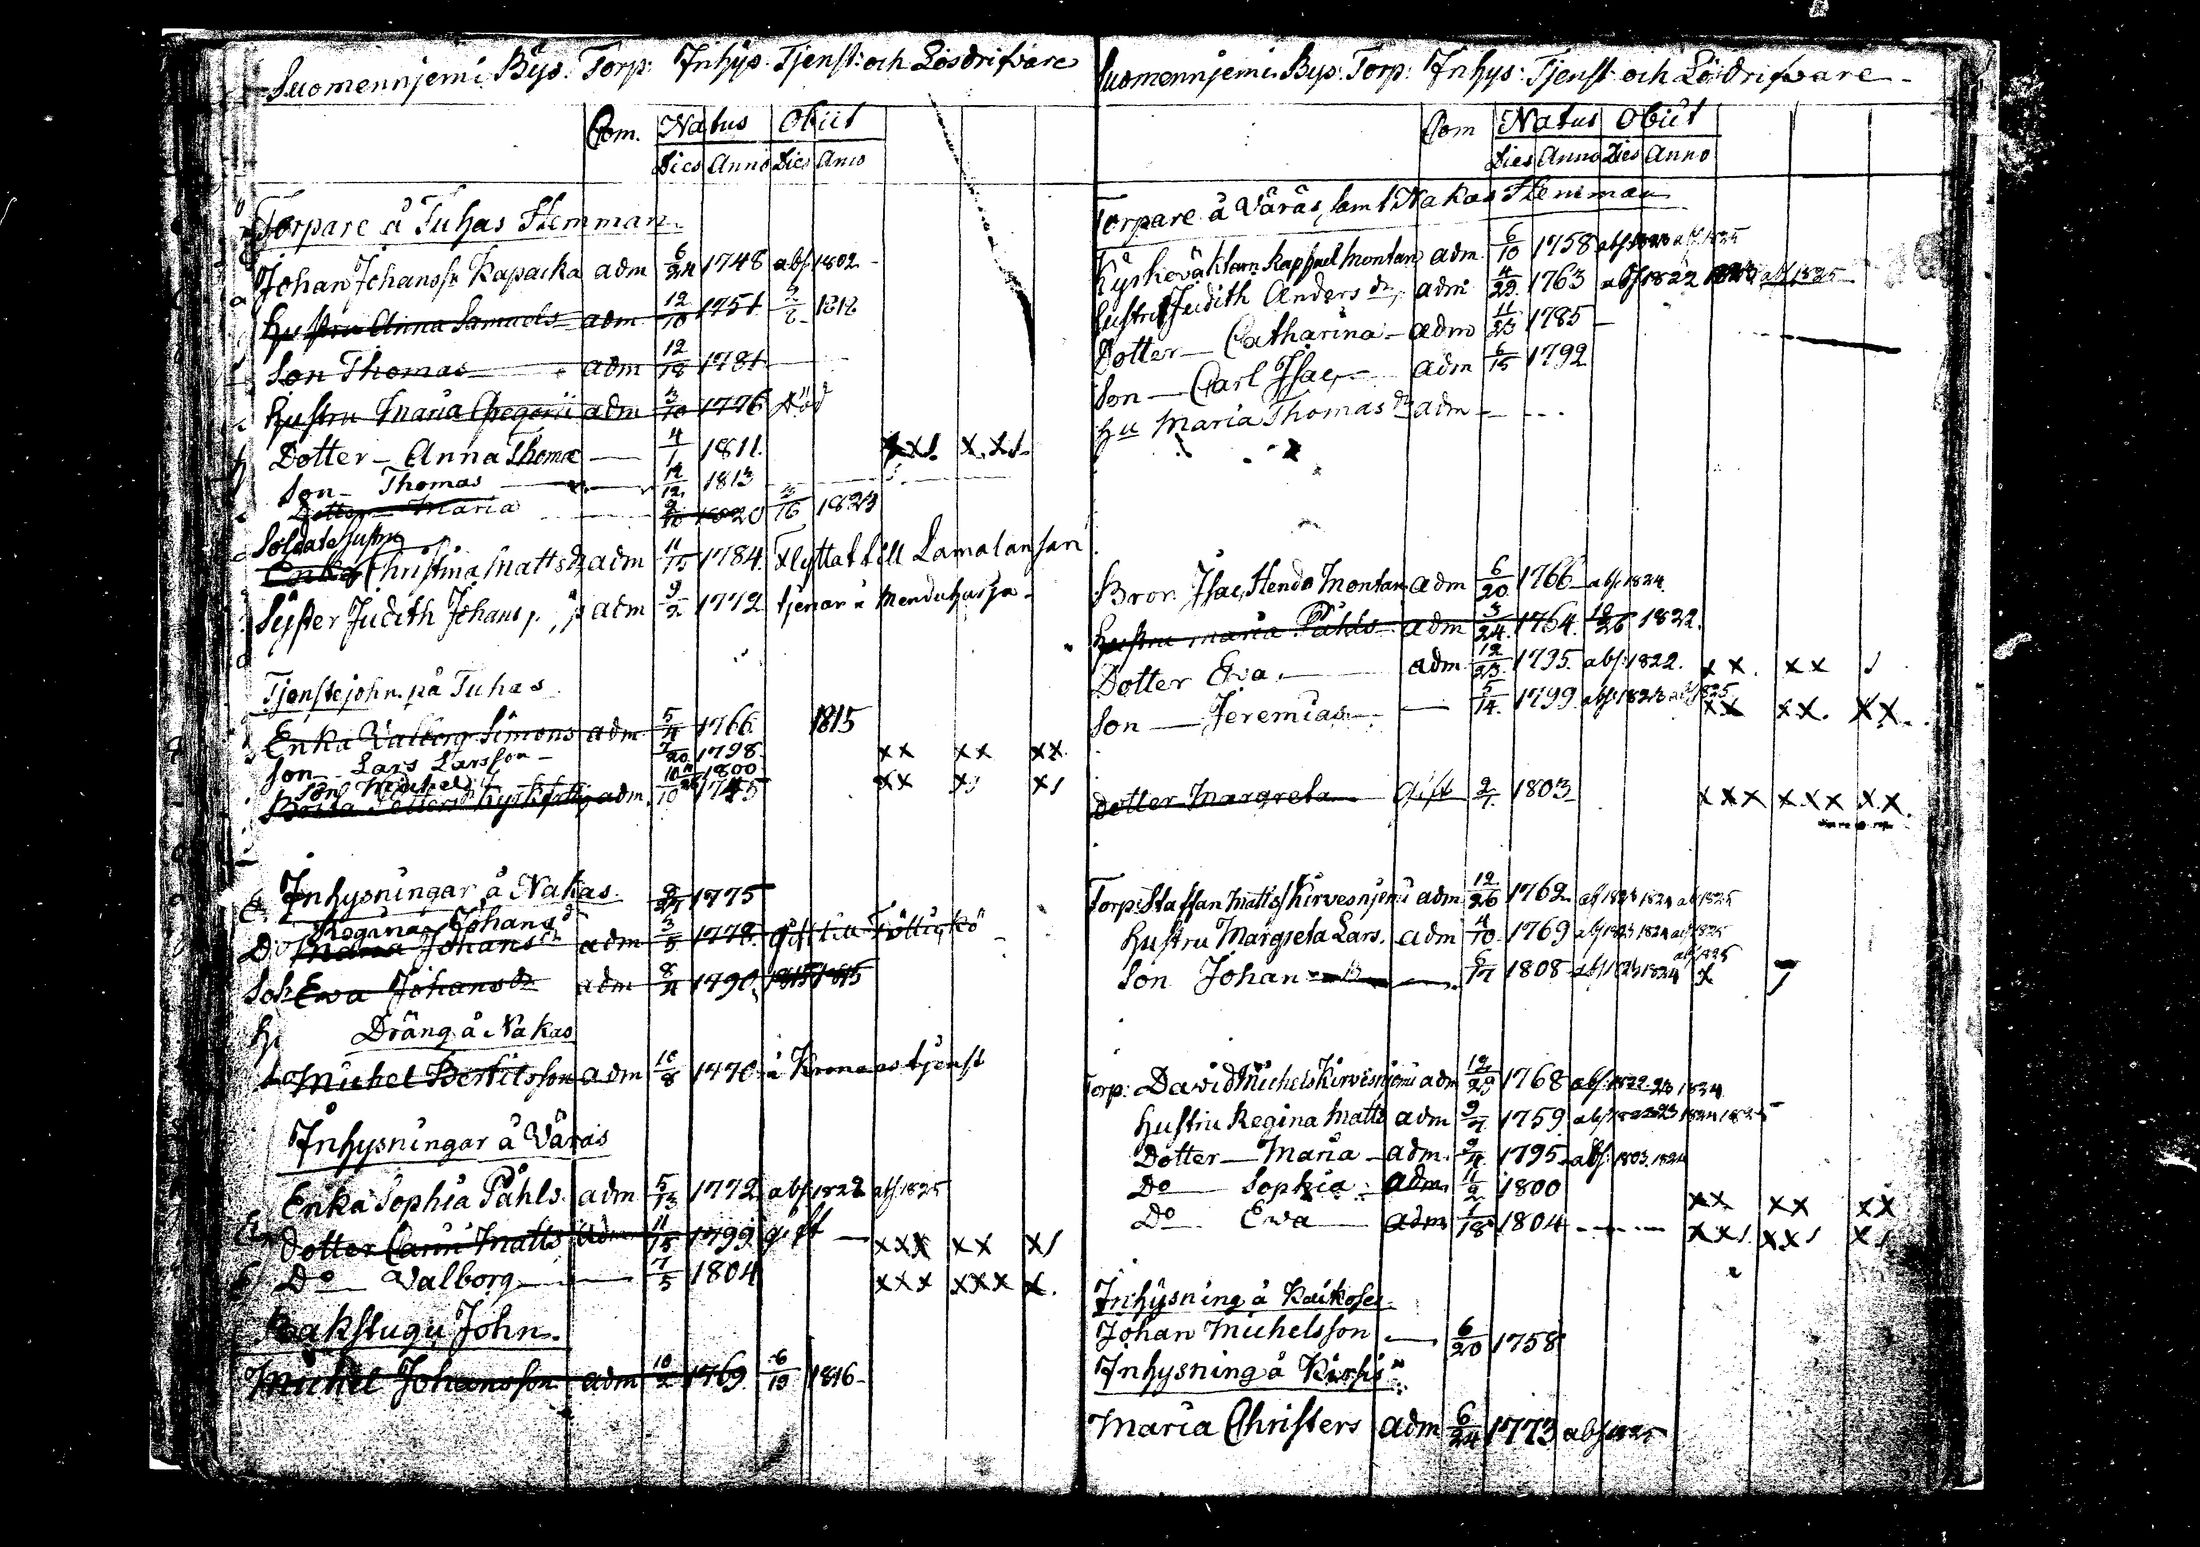 Suomennjemi Bys. Torp: Inhys. Tjenst: och Lösdrifvare
Com. Natus Obiit
Dies Anno Dies Anno
Torpare å Tuhas Hemman.
Johan Johanss: Kapacka adm 6/24 1748 abs 1802
Hustru Anna Samuels adm 12/10 1751 1818
Son Thomas adm 12/18 1781
Hustru Maria adm 3/10 1776 död
Dotter - Anna Thomæ 4/1 1811. xxs. x.xs.
Son - Thomas 12/12 1813
Dotter - Maria 1820 3/16 1823
Soldats Hustru
Enka Christina Matts dr adm 11/15 1784. Flyttat till Lamalansari
Syster Judith Johans adm 9/2 1772 tjenar å
Tjenstejohn. på Tuhas
Enka Valborg Simons adm 5/4 1766. 1815
Son Lars Larsson 7/20 1798. xx xx xx.
Son Michel 1800 xx xs xs
adm. 1745
Inhysningar å Nakas. 1775
Regina Johansdr
Do Maria Johansdr adm 3/5 1778. gift till
Ewa Johans dr adm 8/4 1790. 1815
Dräng å Nakas
Michel Bertilsson adm 10/8 1770. å Kronans tjenst
Inhysningar å Väräs
Enka Sophia Påhls. adm 5/13 1772. abs 1822 abs 1825
Dotter Carin Matts adm 11/15 1799. gift xxx xx xs
Do Valborg 7/5 1804 xxx xxx x.
Bakstugu John.
Michel Johansson adm 10/2 1769. 6/19 1816
Suomennjemi Bys. Torp: Inhys: Tjenst och Lösdrifvare
Com Natus Obiit
Dies Anno Dies Anno
Torpare å Väräs, samt Nakas Hemman
Kyrkoväktarn Raphael Montan adm 6/10 1758 abs 1823 abs 1825
Hustru Judith Anders dr adm 4/29. 1763 abs 1822 1823 abs 1825
Dotter Catharina adm 11/23 1785
Son Carl Isac adm 6/15 1792
Hu Maria Thomas dr adm
Bror Isac Montan adm 6/20 1766 abs 1824.
Hustru Maria Påhls adm 3/24. 1764. 10/26 1822.
Dotter Eva. adm. 12/23. 1795. abs: 1822. xx. xx s
Son Jeremias 5/14. 1799 abs 1823 abs 1825 xx xx. xx.
Dotter Margreta Gift 9/7. 1803 xxx xxx xx.
Torp: Staffan Matts: Kirvesnjemi adm 12/26 1762. abs 1823 1824 abs 1825
Hustru Margreta Lars. adm 4/10. 1769 abs 1823 1824 abs 1825
Son Johan 1808 abs 1823 1824 abs 1825 x
Torp: David Michels Kirvesnjemi adm 12/29 1768 abs 1822 23 1824
Hustru Regina Matts adm 9/7. 1759 abs 1822 23 1824 1825
Dotter Maria adm. 9/4. 1795. abs: 1803. 1824
Do Sophia adm. 11/2 1800 xx xx xx
Do Ewa adm 1/18 1804 xxs xxs xs
Inhysning å Kaikoses.
Johan Michelsson 6/20 1758
Inhysning å
Maria Christers adm 6/24 1773 abs 1825